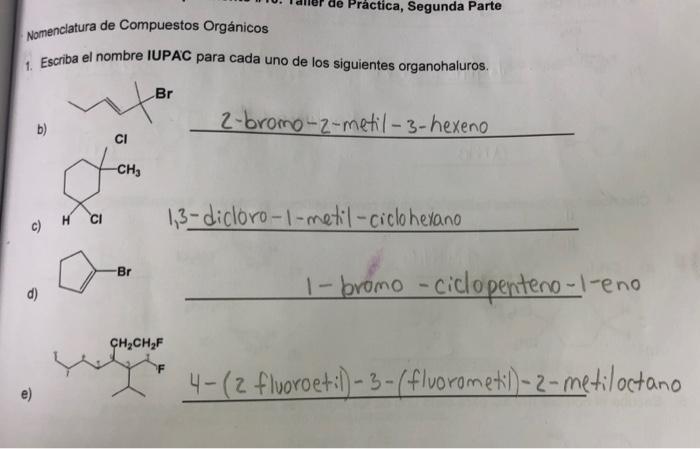 Taller de Práctica, Segunda Parte
Nomenclatura de Compuestos Orgánicos
1. Escriba el nombre IUPAC para cada uno de los siguientes organohaluros.
Br
b) 2-bromo-2-metil-3-hexeno
Cl
CH₃
H Cl
c) 1,3-dicloro-1-metil-ciclohexano
Br
d) 1-bromo-ciclopenteno-1-eno
CH₂CH₂F
F
e) 4-(2 fluoroetil)-3-(fluorometil)-2-metiloctano